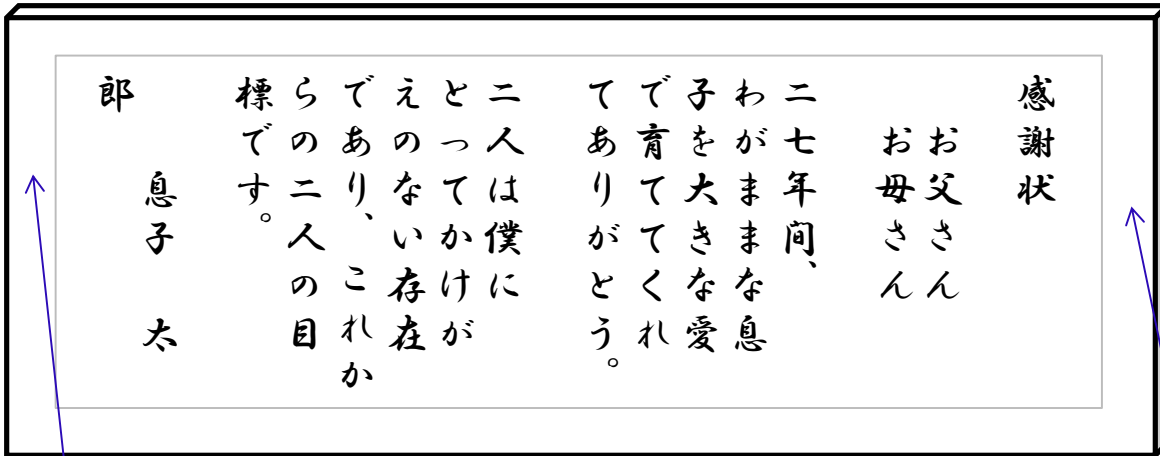 感謝状
お父さん
お母さん
二七年間、
わがままな息
子を大きな愛
で育ててくれ
てありがとう。
二人は僕に
とってかけが
えのない存在
であり、これか
らの二人の目
標です。
息子　太
郎